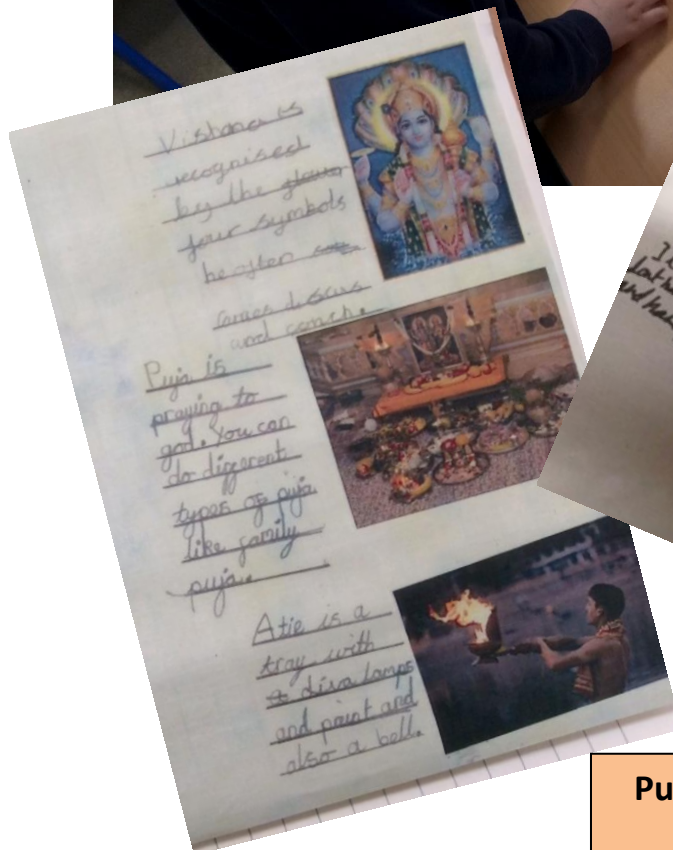 Vishnu is
recognised
by the
four symbols
he often
comes discus
and conch.
Puja is
praying to
god. You can
do different
types of puja
like family
puja.
Atie is a
tray with
diva lamps
and paint and
also a bell.
I
and
Pu